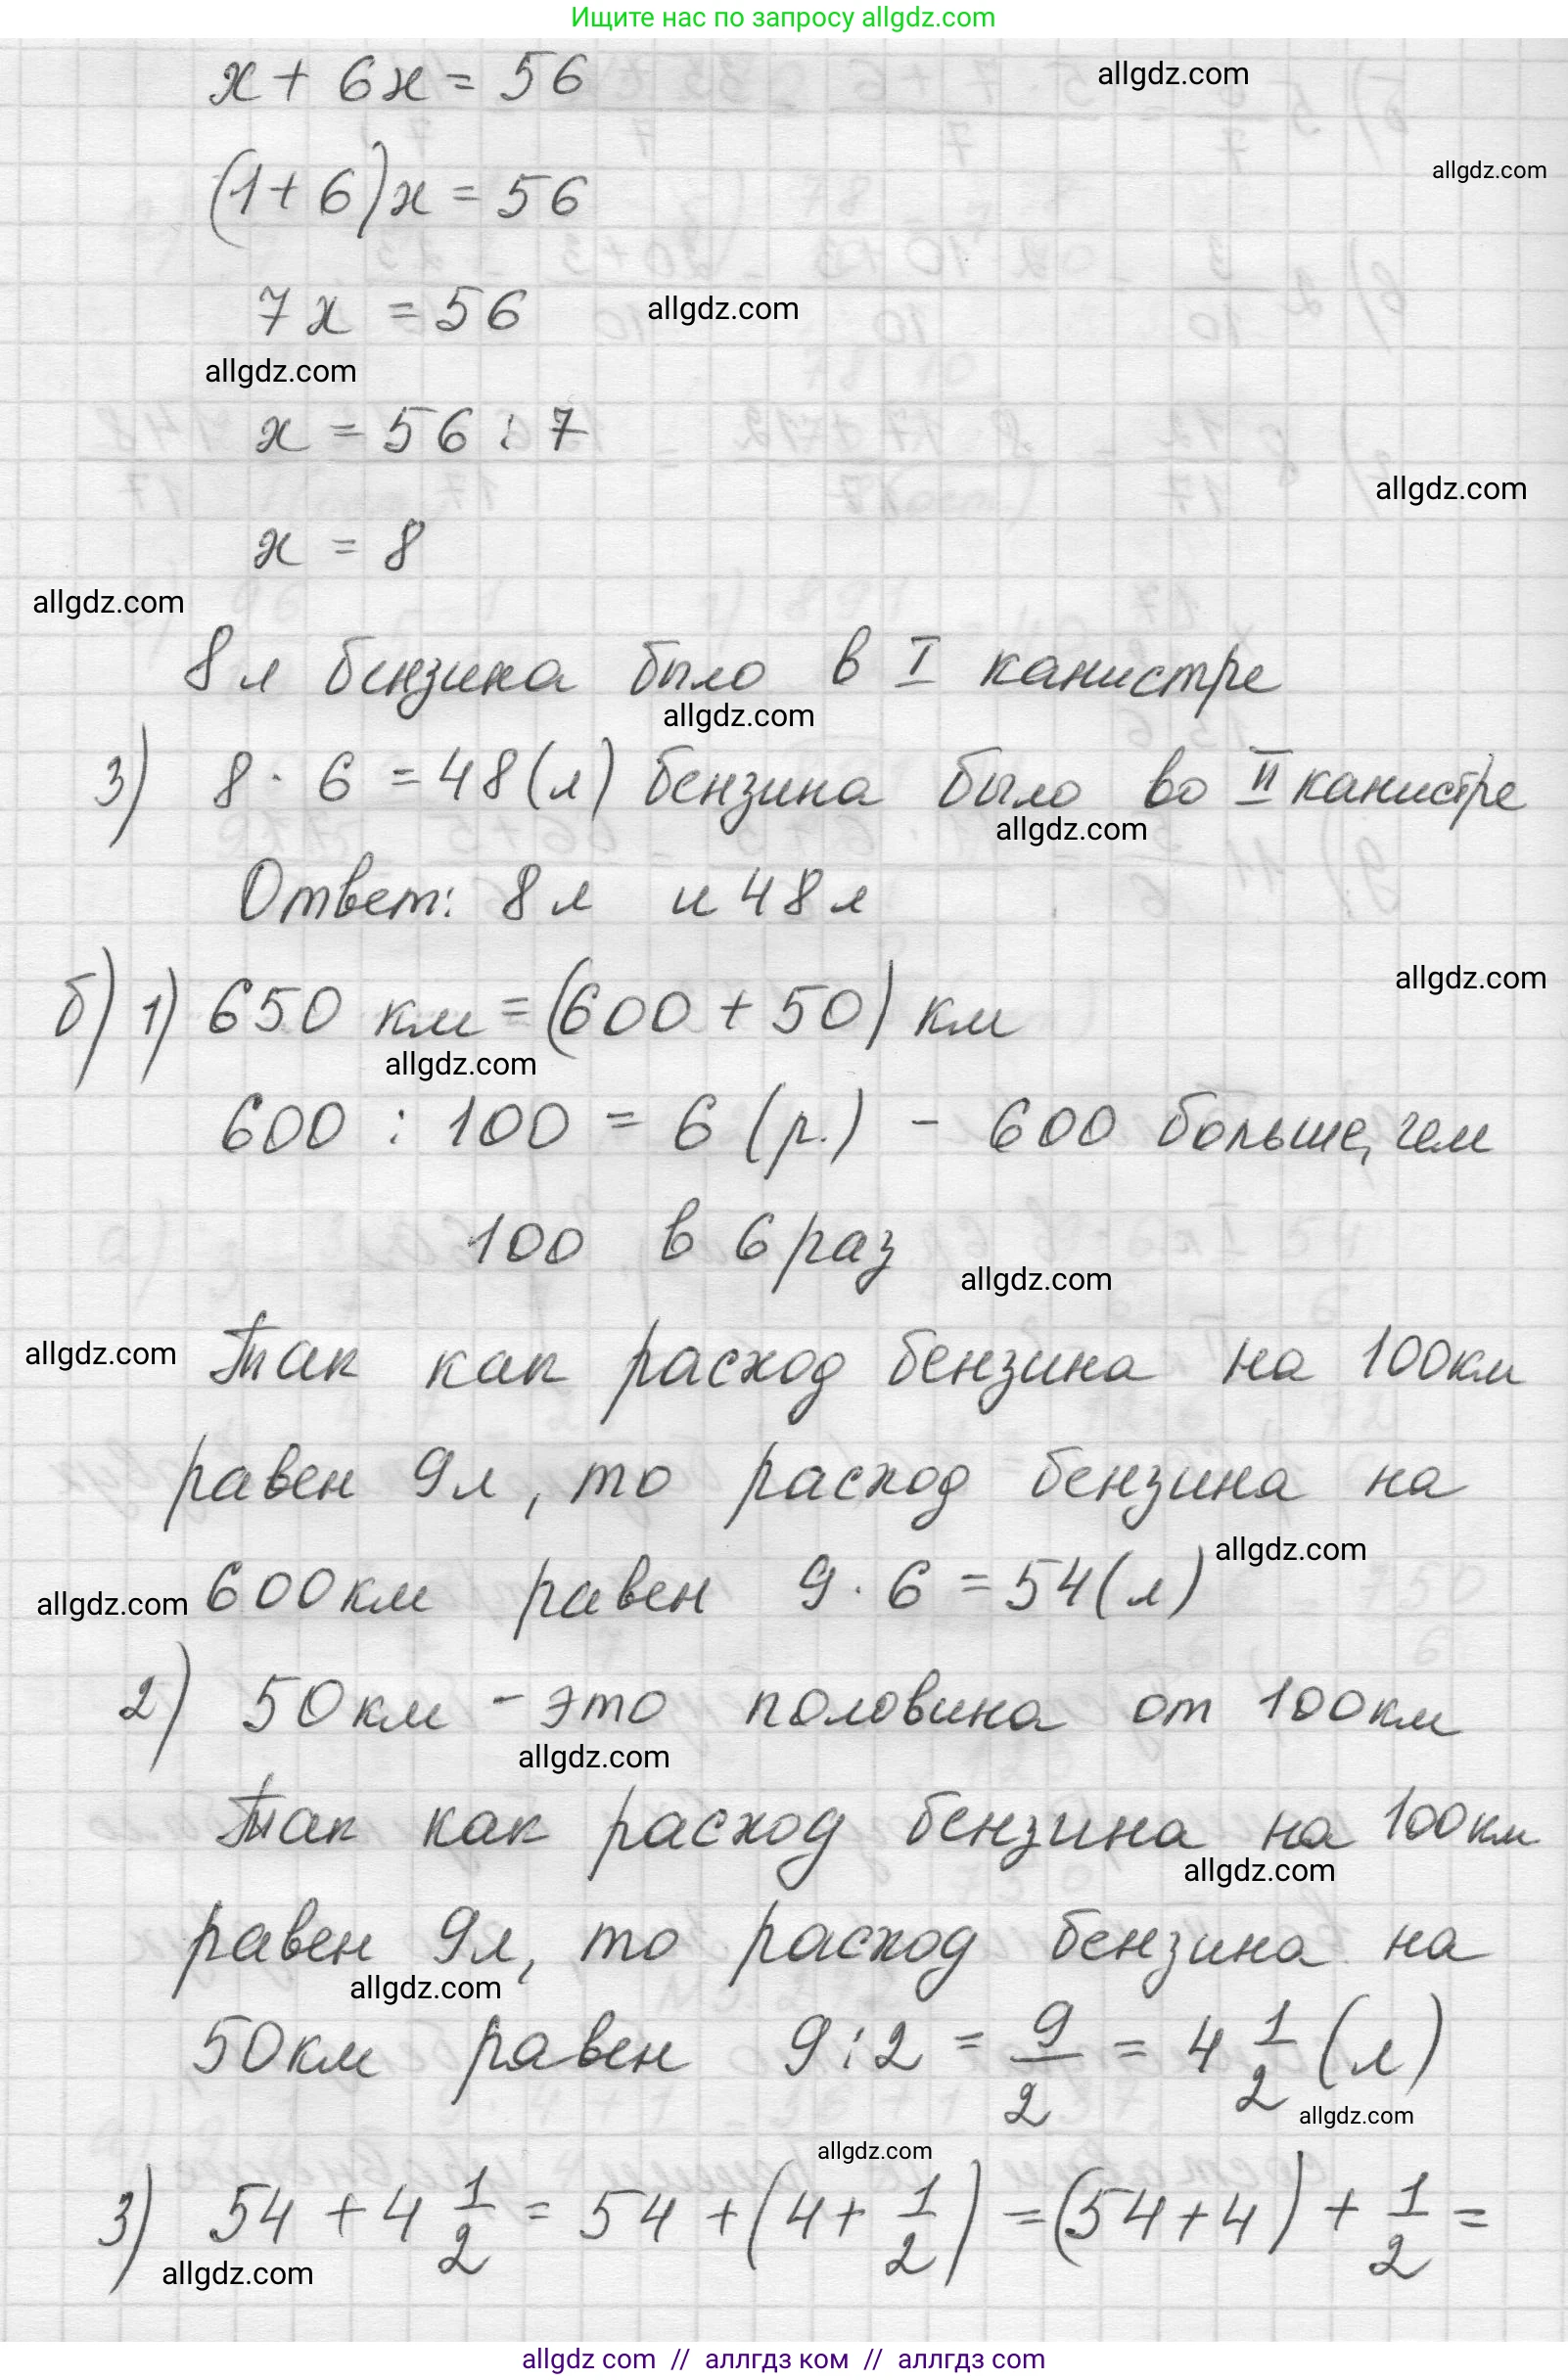 Ищите нас по запросу allgdz.com
x + 6x = 56
allgdz.com
allgdz.com
(1 + 6)x = 56
7x = 56
allgdz.com
allgdz.com
x = 56 : 7
allgdz.com
x = 8
allgdz.com
8 л бензина было в I канистре
allgdz.com
3) 8 · 6 = 48 (л) бензина было во II канистре
allgdz.com
Ответ: 8 л и 48 л
allgdz.com
б) 1) 650 км = (600 + 50) км
allgdz.com
600 : 100 = 6 (р.) - 600 больше, чем
100 в 6 раз
allgdz.com
allgdz.com
Так как расход бензина на 100 км
равен 9 л, то расход бензина на
allgdz.com
allgdz.com
600 км равен 9 · 6 = 54 (л)
2) 50 км - это половина от 100 км
allgdz.com
Так как расход бензина на 100 км
allgdz.com
равен 9 л, то расход бензина на
allgdz.com
50 км равен 9 : 2 = 9/2 = 4 1/2 (л)
allgdz.com
allgdz.com
3) 54 + 4 1/2 = 54 + (4 + 1/2) = (54 + 4) + 1/2 =
allgdz.com
allgdz com // аллгдз ком // аллгдз com